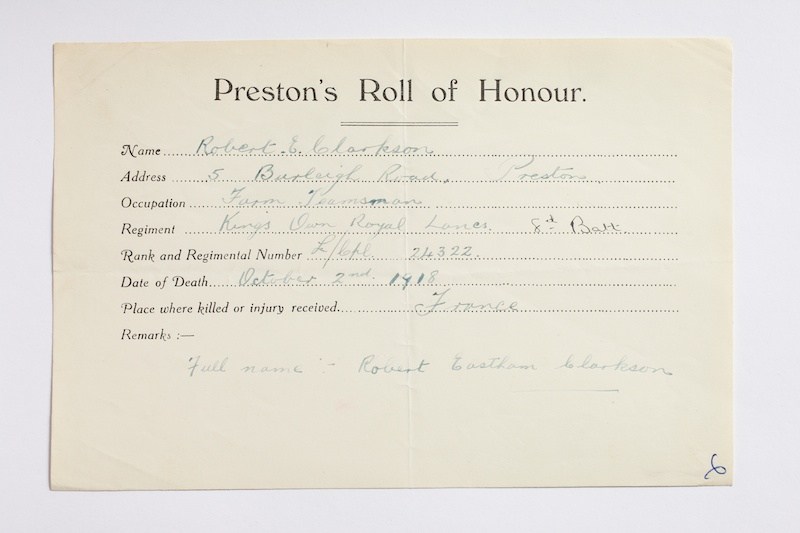 Preston's Roll of Honour.
Name Robert E. Clarkson
Address 5 Burleigh Road, Preston.
Occupation Farm Teamsman
Regiment King's Own Royal Lancs. 8th Batt
Rank and Regimental Number L/Cpl 24322.
Date of Death October 2nd. 1918
Place where killed or injury received France
Remarks :—
Full name :- Robert Eastham Clarkson
6